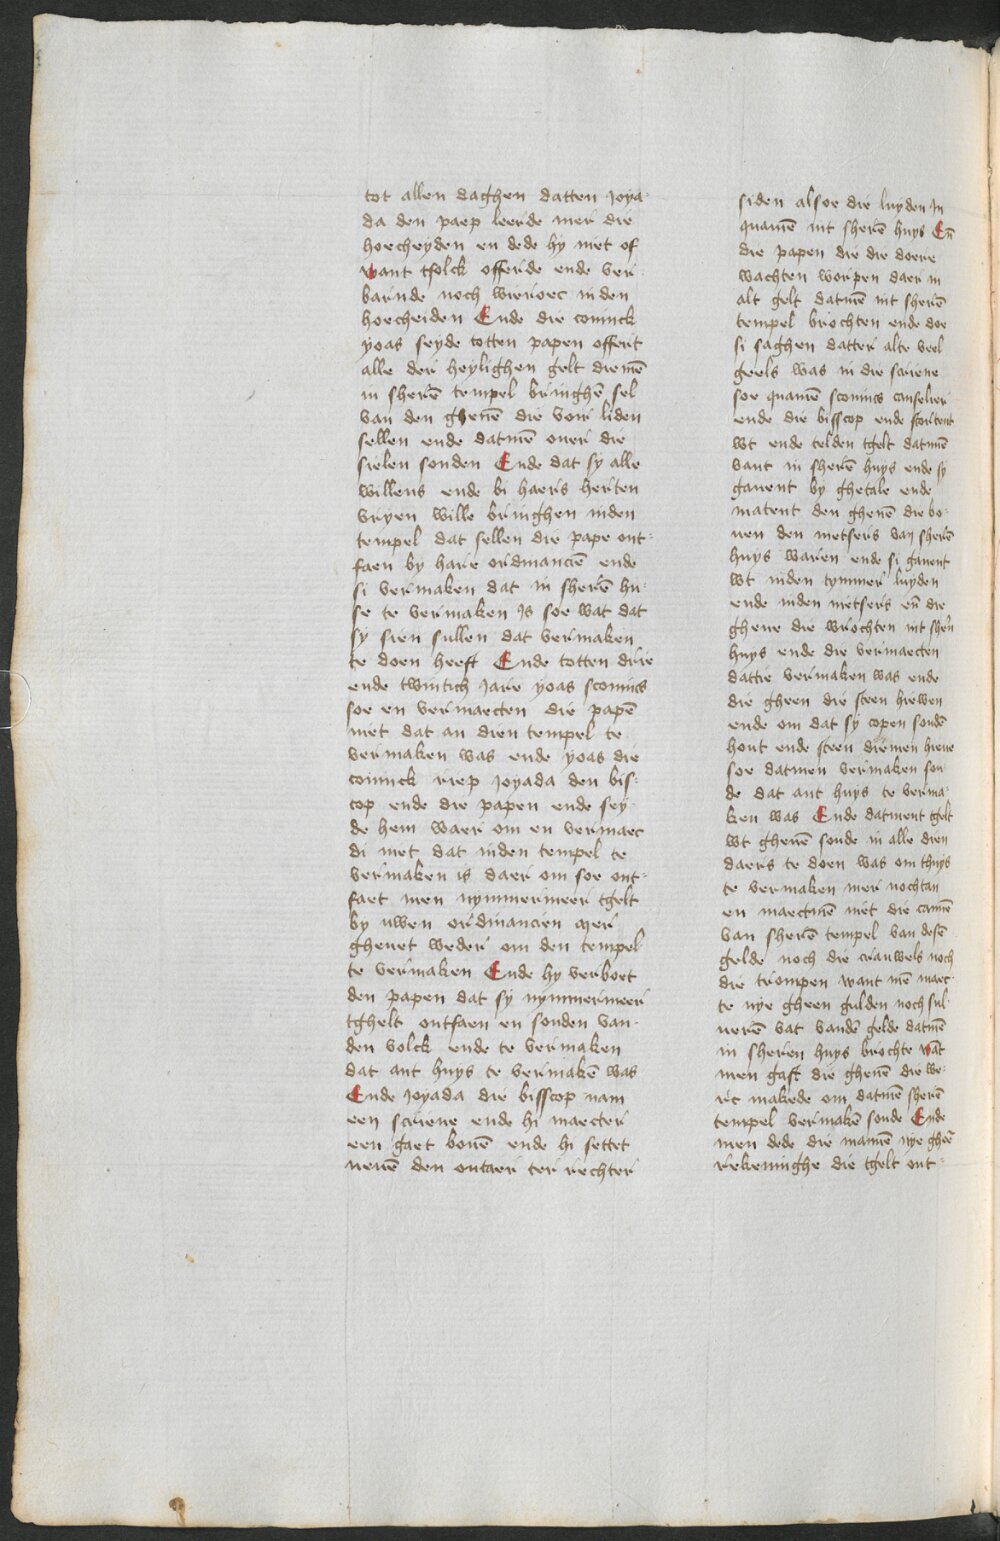 tot allen daghen datten joya-
da den paep leerde mer die
hoecheyden en dede hy niet of
want tfolck offerde ende ver
barnde noch wieroec inden
hoecheiden Ende die coninck
yoas seyde totten papen offert
alle der heylighen gelt diemē
in sherē tempel bringhē sel
van den ghenē die voir liden
sellen ende datmē ouer die
sielen sonden Ende dat sy alle
willens ende bi haers herten
vryen wille bringhen inden
tempel dat sellen die pape ont-
faen by hare ordinanciē ende
si vermaken dat in sherē hu-
se te vermaken js soe wat dat
sy sien sullen dat vermaken
te doen heeft Ende totten drie
ende twintich jare yoas sconincs
soe en vermaecten die papē
niet dat an dien tempel te
vermaken was ende yoas die
coninck riep joyada den bis-
cop ende die papen ende sey-
de hem waer om en vermaec
di niet dat inden tempel te
vermaken is daer om soe ont-
faet men nymmermeer tgelt
by uwen ordinancien mer
gheuet weder om den tempel
te vermaken Ende hy verboet
den papen dat sy nymmermeer
tghelt ontfaen en souden van-
den volck ende te vermaken
dat ant huys te vermakē was
Ende joyada die bisscop nam
een scriene ende hi maecter
een gaet bouē ende hi settet
neuē den outaer ter rechter
siden alsoe die luyden jn
quamē int sherē huys Eñ
die papen die die doere
wachten worpen daer in
alt gelt datmē int sherē
tempel brochten ende doe
si saghen datter alte veel
geels was in die scriene
soe quamē sconincs canselier
ende die bisscop ende stortent
wt ende telden tgelt datmē
vant in sherē huys ende sy
gauent by ghetale ende
matent den ghenē die bo-
uen den metsers van sherē
huys waren ende si gauent
wt inden tymmer luyden
ende inden metsers eñ die
ghene die wrochten int sherē
huys ende die vermaecten
dattie vermaken was ende
die gheen die steen hiewen
ende om dat sy copen soudē
hout ende steen diemen hieue
soe datmen vermaken sou
de dat ant huys te verma-
ken was Ende datment tgelt
wt gheuē soude in alle dien
daers te doen was om thuys
te vermaken mer nochtan
en maectmē niet die cannē
van sherē tempel van desē
gelde noch die crauwels noch
die trompen want mē maec-
te nye gheen gulden noch sul-
uerē vat vandē gelde datmē
in sheren huys brochte wāt
men gaft die ghenē die we-
rc makede om datmē sherē
tempel vermakē soude Ende
men dede die mannē nye gheē
rekeninghe die tgelt ont-